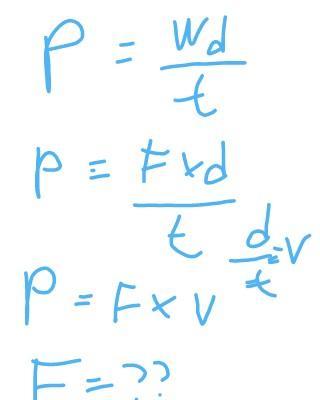 P = Wd/t
P = Fxd/t
d/t = V
P = F x V
F = ??